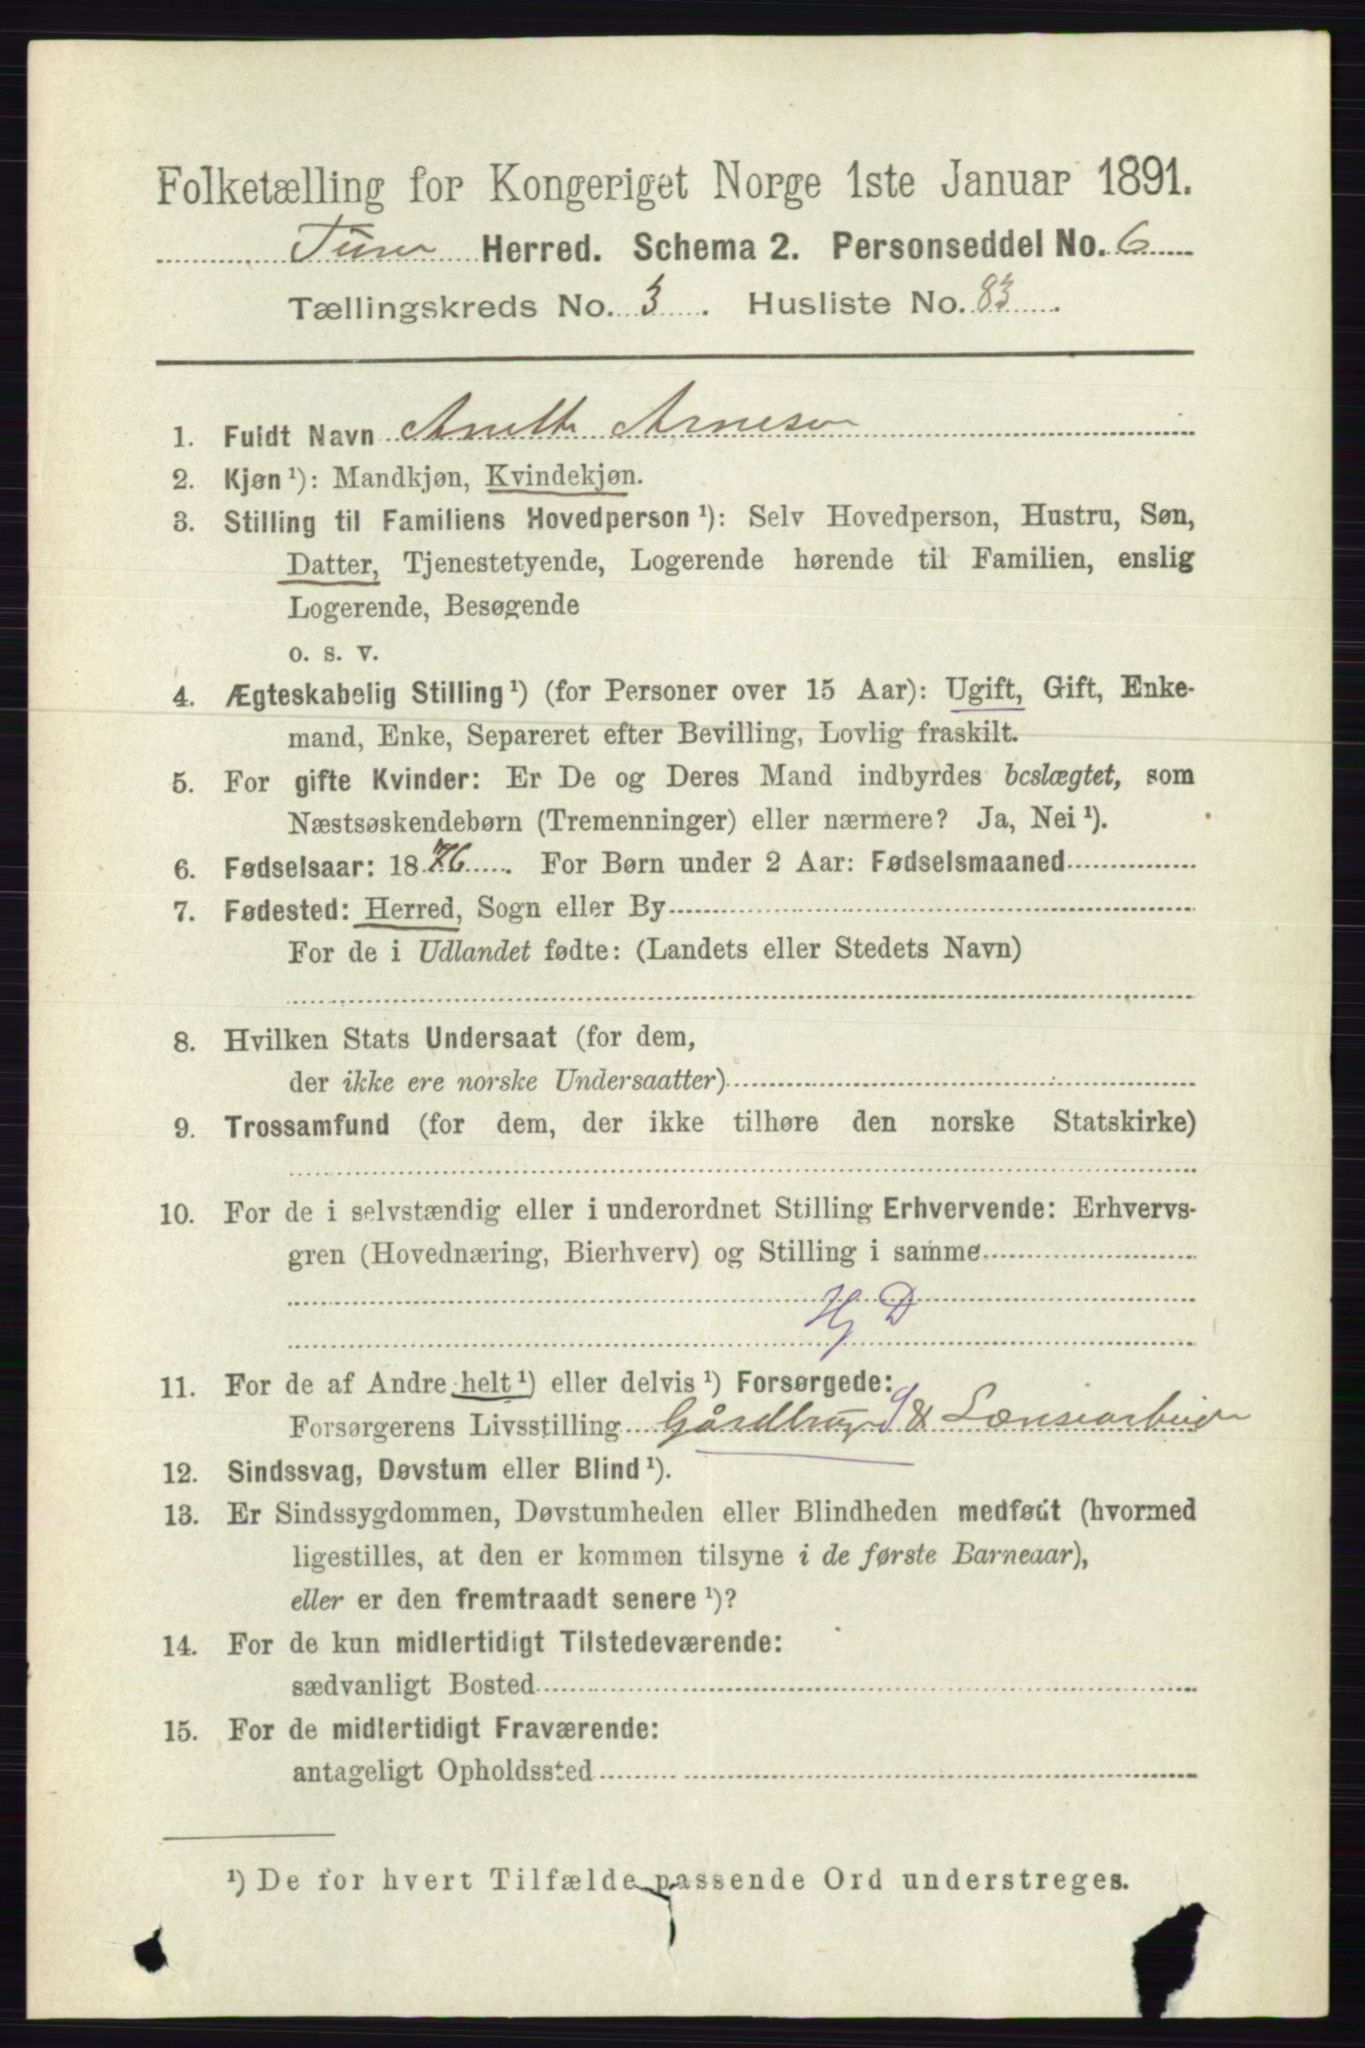 Folketælling for Kongeriget Norge 1ste Januar 1891.
Tune Herred. Schema 2. Personseddel No. 6
Tællingskreds No. 3. Husliste No. 83.
1. Fuldt Navn Arnesen
2. Kjøn ¹): Mandkjøn, Kvindekjøn.
3. Stilling til Familiens Hovedperson ¹): Selv Hovedperson, Hustru, Søn,
Datter, Tjenestetyende, Logerende hørende til Familien, enslig
Logerende, Besøgende
o. s. v.
4. Ægteskabelig Stilling ¹) (for Personer over 15 Aar): Ugift, Gift, Enke-
mand, Enke, Separeret efter Bevilling, Lovlig fraskilt.
5. For gifte Kvinder: Er De og Deres Mand indbyrdes beslægtet, som
Næstsøskendebørn (Tremenninger) eller nærmere? Ja, Nei ¹).
6. Fødselsaar: 1876. For Børn under 2 Aar: Fødselsmaaned
7. Fødested: Herred, Sogn eller By
For de i Udlandet fødte: (Landets eller Stedets Navn)
8. Hvilken Stats Undersaat (for dem,
der ikke ere norske Undersaatter)
9. Trossamfund (for dem, der ikke tilhøre den norske Statskirke)
10. For de i selvstændig eller i underordnet Stilling Erhvervende: Erhvervs-
gren (Hovednæring, Bierhverv) og Stilling i samme
Hj D
11. For de af Andre helt ¹) eller delvis ¹) Forsørgede:
Forsørgerens Livsstilling Gårdbruger & Lænsearbeider
12. Sindssvag, Døvstum eller Blind ¹).
13. Er Sindssygdommen, Døvstumheden eller Blindheden medfødt (hvormed
ligestilles, at den er kommen tilsyne i de første Barneaar),
eller er den fremtraadt senere ¹)?
14. For de kun midlertidigt Tilstedeværende:
sædvanligt Bosted
15. For de midlertidigt Fraværende:
antageligt Opholdssted
¹) De for hvert Tilfælde passende Ord understreges.